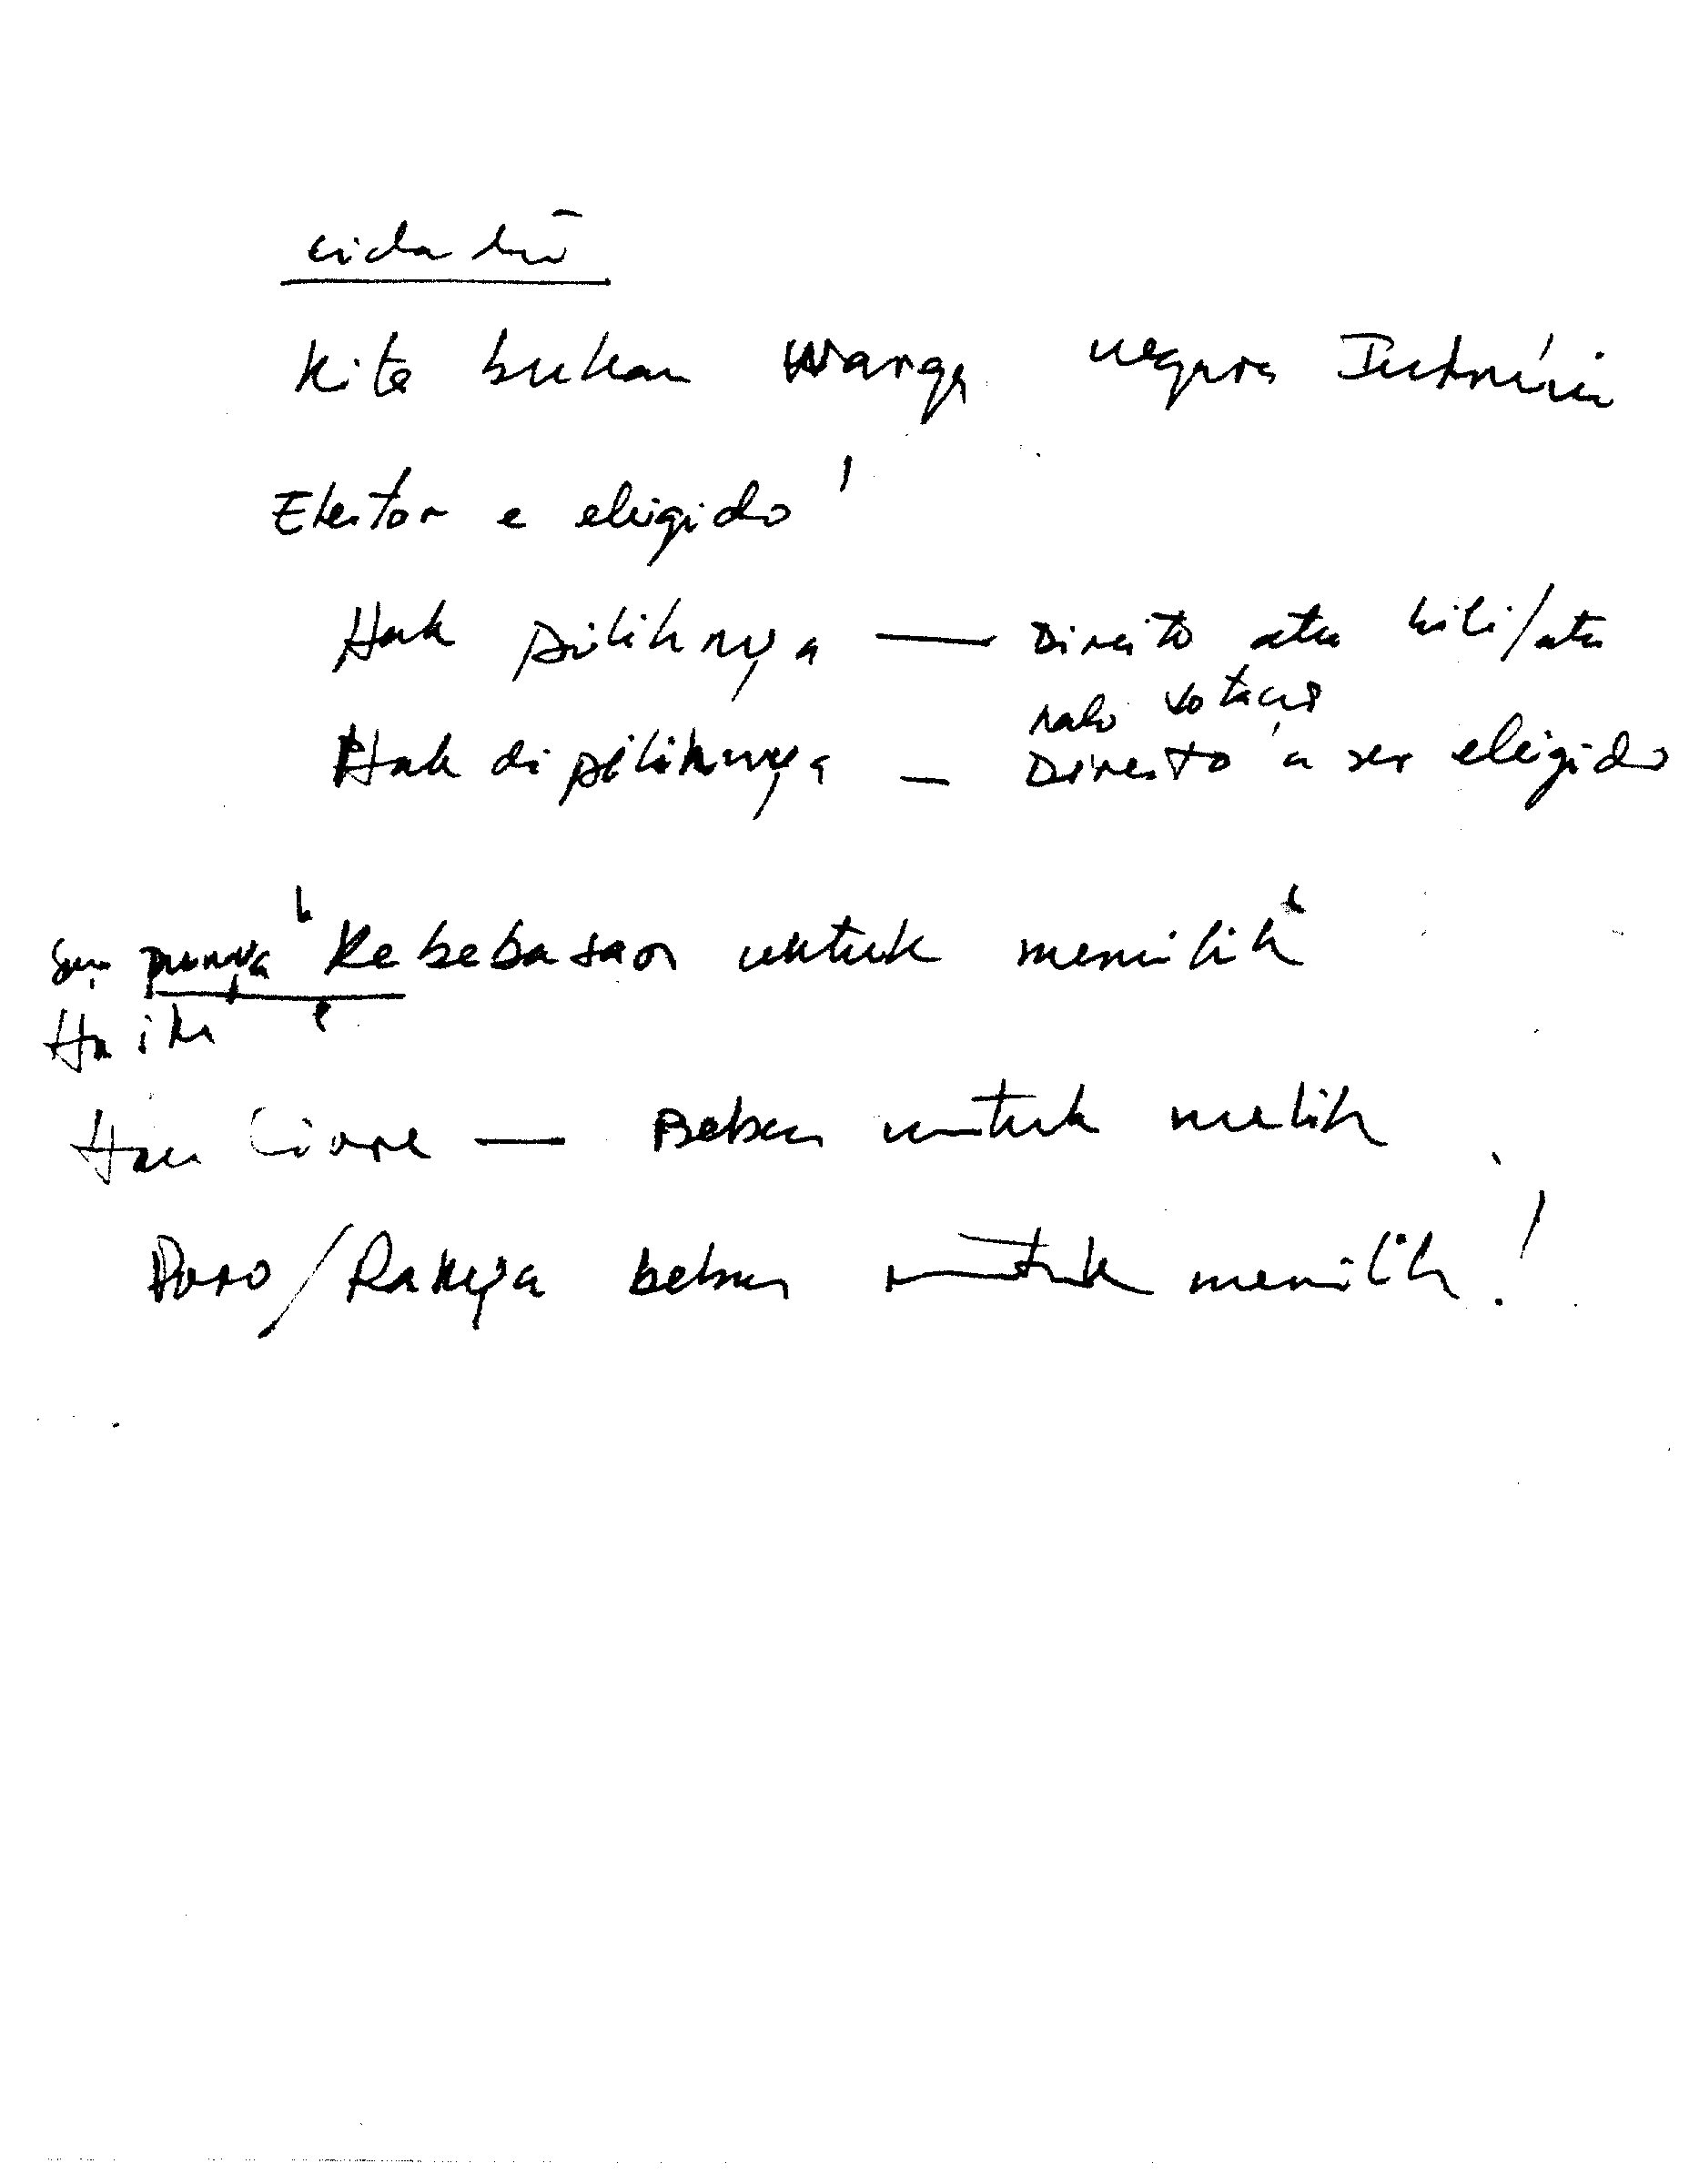 cidadão
Kita bukan Warga negara Indonésia
Eleitor e eleigido
Hak pilihnya — Direito atu hili/atu
halo votação
Hak dipilihnya — Direito a ser eleigido
punya "Kebebasaan untuk memilih"
Ha'u livre — Bebas untuk melih
Povo/Rakyja bebas untuk memilih!